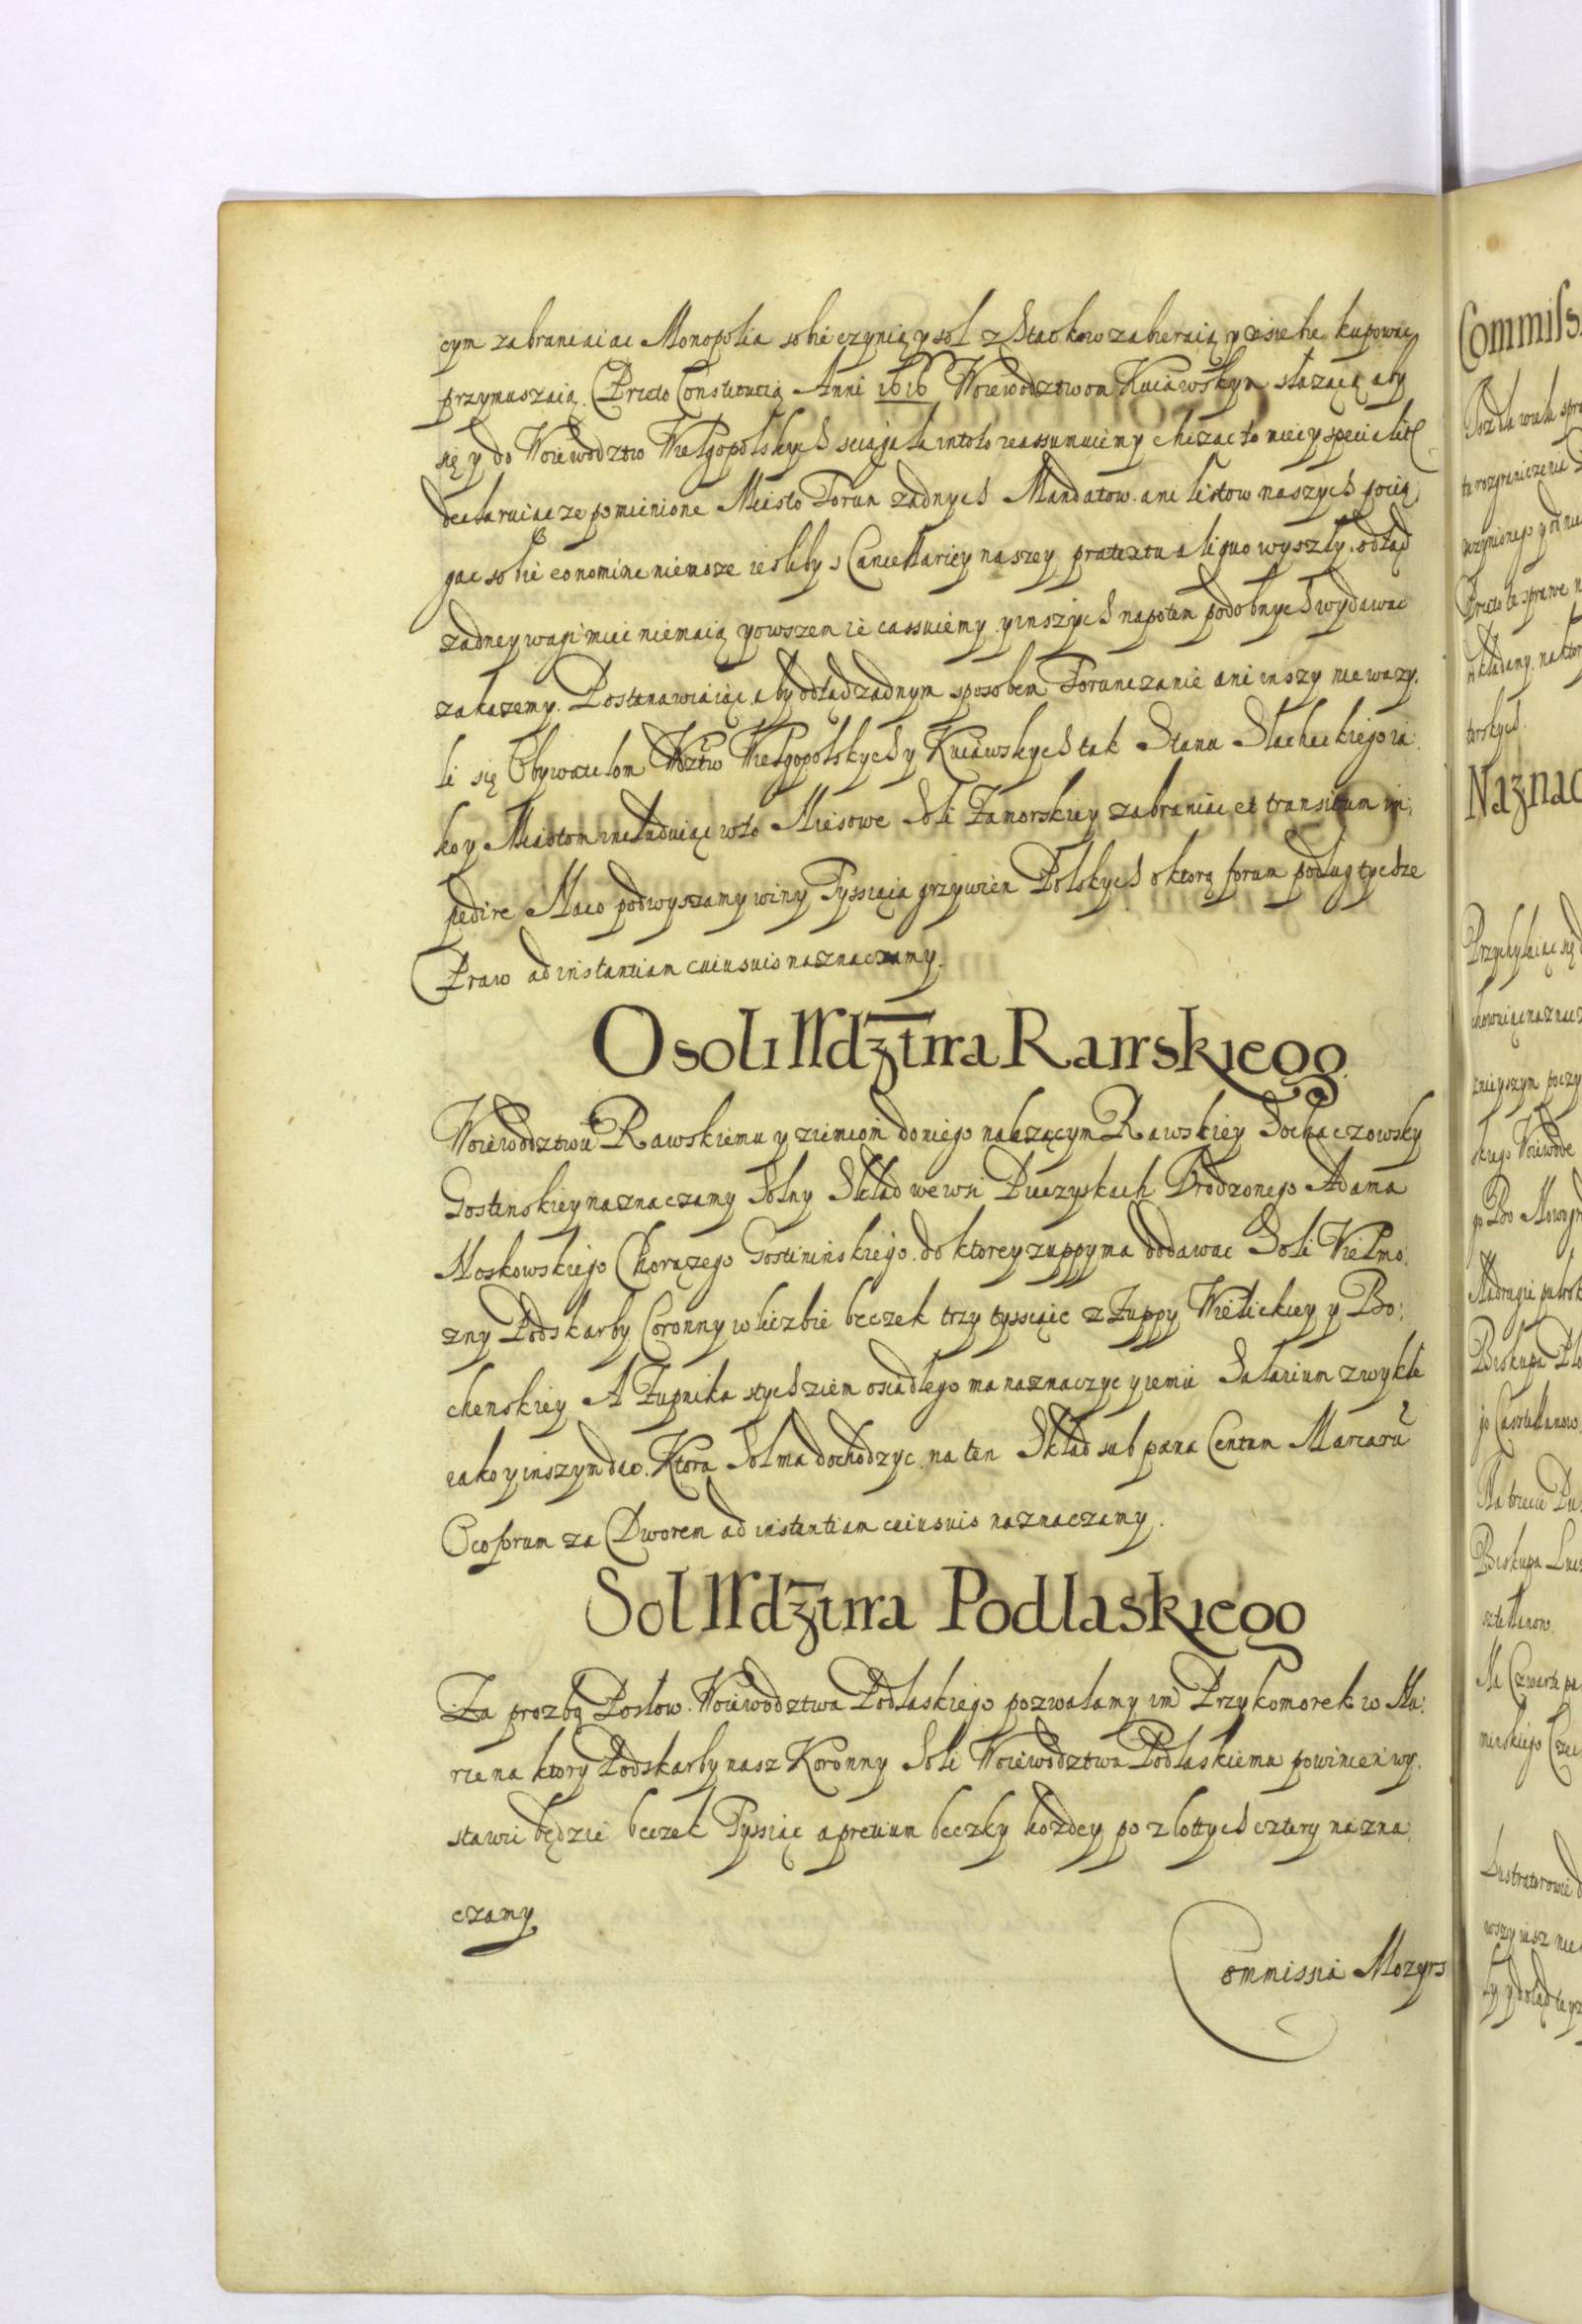 cym zabraniaiac Monopolia sobie czynią y sol z Statkow zabieraią y u siebie kupowac
przymuszaią. Przeto Constitutią Anni 1616 Woiewodztwom Kuiawskym słuzącą aby
się y do Woiewodztw Wielgopolskych sciągała in toto reassumuiemy chcząc to miec y specialit
declaruiac ze pomienione Miasto Torun zadnych Mandatow ani listow naszych pocią
gac sobie eo nomine niemoze iesliby s Cancellariey naszey prætextu aliquo wyszły, odtąd
zadney wagi miec niemaią y owszem ie cassuiemy y inszych napotem podobnych wydawac
zakazemy. Postanawiaiąc aby odtąd zadnym sposobem Torunczanie ani inszy nie wazy.
li się Obywatelom Wdztw Wielgopolskych y Kuiawskych tak Stanu Slacheckiego ia.
ko y Miastom includuiąc w to Miesowe Soli Zamorskiey zabraniac et transitum im.
pedire Maco podwyszamy winy Tyssiąca grzywien Polskych o ktorą forum podług tychze
Praw ad instantiam cuiusuis naznaczamy.
O soli Wdztwa Rawskiego
Woiewodztwu Rawskiemu y ziemiom do niego nalezącym Rawskiey Sochaczowsky
Gostinskiey naznaczamy Solny Skład we wsi Duczyskach Urodzonego Adama
Moskowskiego Chorązego Gostininskiego do ktorey zuppy ma dodawac Soli Wielmo.
zny Podskarby Coronny w liczbie beczek trzy tyssiąc z Zuppy Wielickiey y Bo:
chenskiey A Zupnika stych ziem osiadłego ma naznaczyc y iemu Salarium zwykłe
iako y inszym dac. Ktora Sol ma dochodzyc na ten Skład sub pæna Centum Marcarū
O co forum za Dworem ad instantiam cuiusuis naznaczamy.
Sol Wdztwa Podlaskiego
Za prozbą Posłow Woiewodztwa Podlaskiego pozwalamy im Przykomorek w Nu.
rze na ktory Podskarby nasz Koronny Soli Woiewodztwu Podlaskiemu powinien wy.
stawic będzie beczek Tyssiąc a pretium beczky kozdey po zlottych cztery nazna.
czamy
Commissia Mozyrs